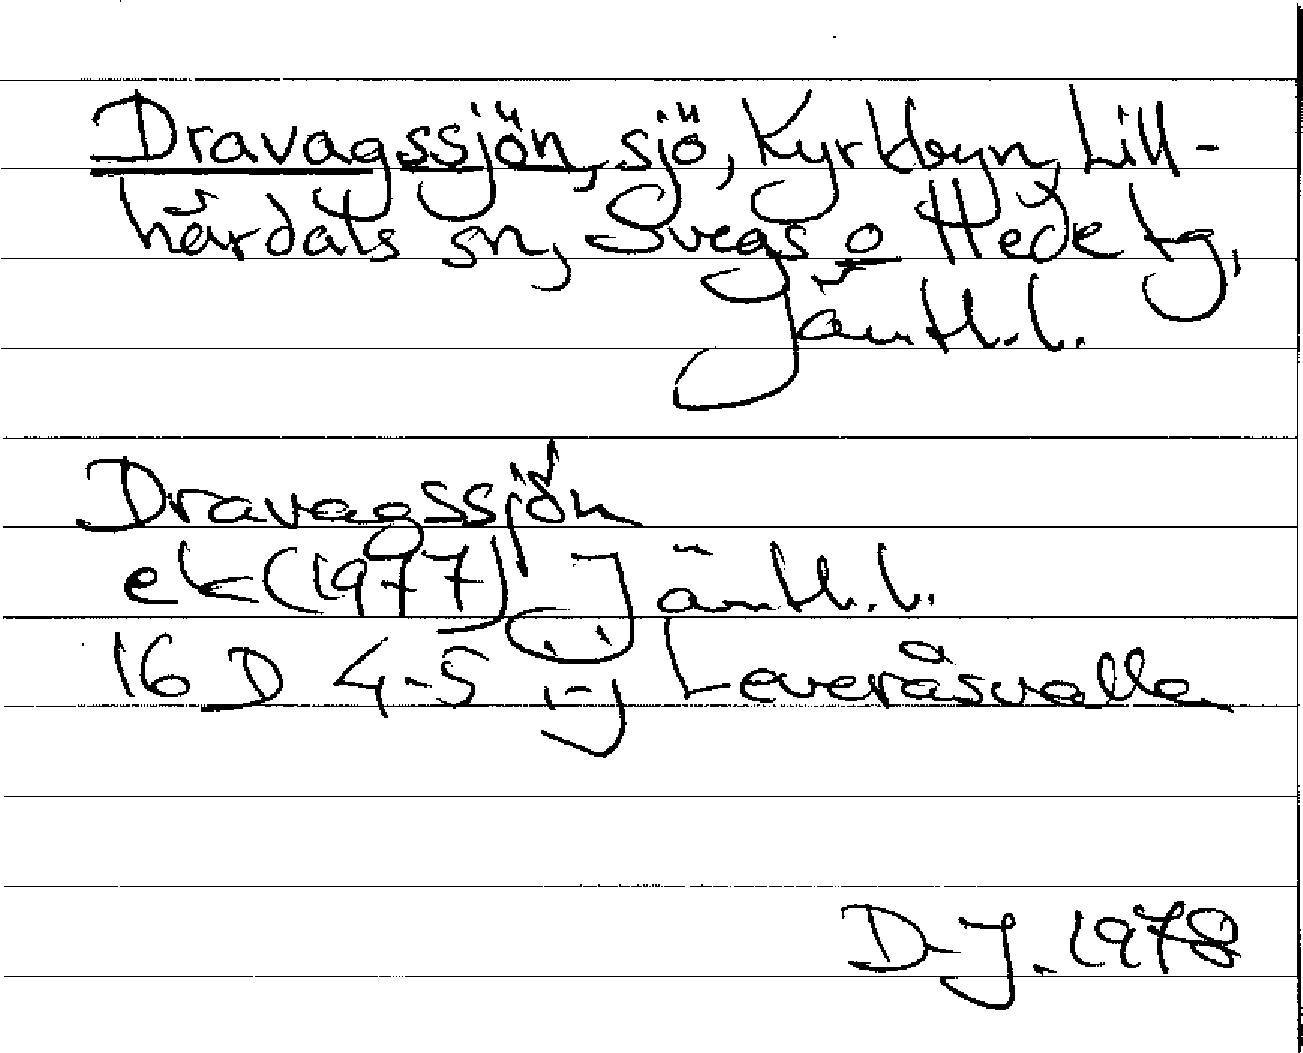 Dravagssjön, sjö, Kyrkbyn, Lill-
härdals sn, Svegs o Hede tg,
Jämtl. l.
Dravagssjön
ek (1977) Jämtl. l.
16 D 4-5 i-j Leveråsvallen
D-J. 1978